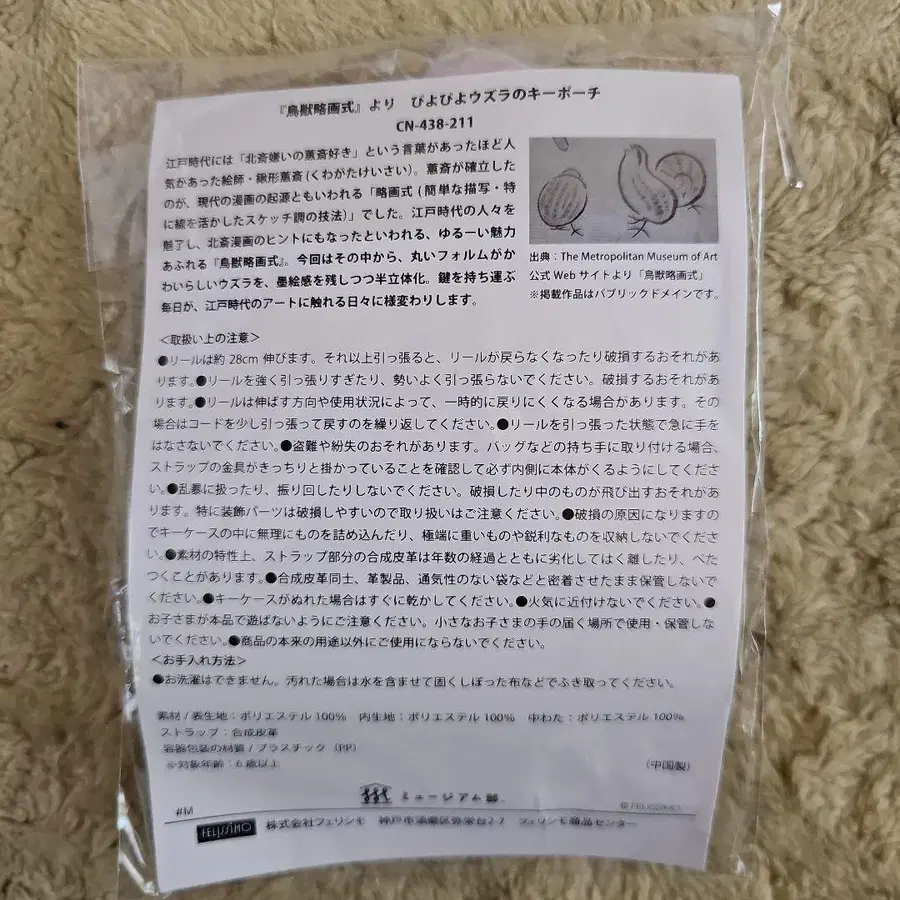 『鳥獣略画式』より　ぴよぴよウズラのキーポーチ
CN-438-211
江戸時代には「北斎嫌いの蕙斎好き」という言葉があったほど人
気があった絵師・鍬形蕙斎(くわがたけいさい)。蕙斎が確立した
のが、現代の漫画の起源ともいわれる「略画式(簡単な描写・特
に線を活かしたスケッチ調の技法)」でした。江戸時代の人々を
魅了し、北斎漫画のヒントにもなったといわれる、ゆるーい魅力
あふれる『鳥獣略画式』。今回はその中から、丸いフォルムがか
わいらしいウズラを、墨絵感を残しつつ半立体化。鍵を持ち運ぶ
毎日が、江戸時代のアートに触れる日々に様変わりします。
出典：The Metropolitan Museum of Art
公式 Web サイトより「鳥獣略画式」
※掲載作品はパブリックドメインです。
＜取扱い上の注意＞
●リールは約 28cm 伸びます。それ以上引っ張ると、リールが戻らなくなったり破損するおそれがあ
ります。●リールを強く引っ張りすぎたり、勢いよく引っ張らないでください。破損するおそれがあ
ります。●リールは伸ばす方向や使用状況によって、一時的に戻りにくくなる場合があります。その
場合はコードを少し引っ張って戻すのを繰り返してください。●リールを引っ張った状態で急に手を
はなさないでください。●盗難や紛失のおそれがあります。バッグなどの持ち手に取り付ける場合、
ストラップの金具がきっちりと掛かっていることを確認して必ず内側に本体がくるようにしてくださ
い。●乱暴に扱ったり、振り回したりしないでください。破損したり中のものが飛び出すおそれがあ
ります。特に装飾パーツは破損しやすいので取り扱いはご注意ください。●破損の原因になりますの
でキーケースの中に無理にものを詰め込んだり、極端に重いものや鋭利なものを収納しないでくださ
い。●素材の特性上、ストラップ部分の合成皮革は年数の経過とともに劣化してはく離したり、べた
つくことがあります。●合成皮革同士、革製品、通気性のない袋などと密着させたまま保管しないで
ください。●キーケースがぬれた場合はすぐに乾かしてください。●火気に近付けないでください。●
お子さまが本品で遊ばないようにご注意ください。小さなお子さまの手の届く場所で使用・保管しな
いでください。●商品の本来の用途以外にご使用にならないでください。
＜お手入れ方法＞
●お洗濯はできません。汚れた場合は水を含ませて固くしぼった布などでふき取ってください。
素材 / 表生地：ポリエステル 100%　内生地：ポリエステル 100%　中わた：ポリエステル 100%
ストラップ：合成皮革
容器包装の材質 / プラスチック (PP)
※対象年齢：6 歳以上
(中国製)
ミュージアム部
© FELISSIMO
#M
FELISSIMO 株式会社フェリシモ　神戸市須磨区弥栄台2-7　フェリシモ商品センター